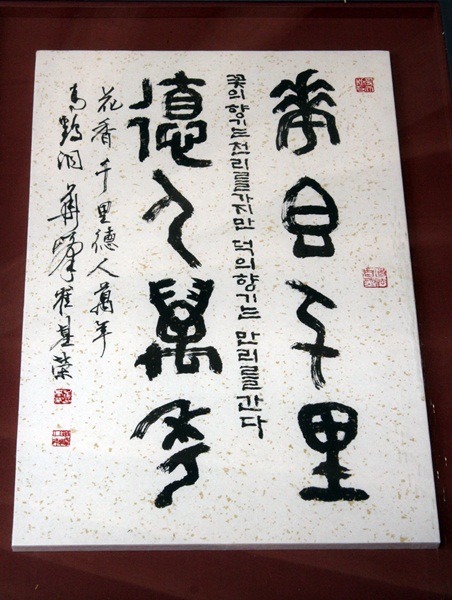 華香千里
꽃의향기는천리를가지만 덕의향기는 만리를간다
德人萬年
花香千里德人萬年
鶴洞 華峯 崔基榮